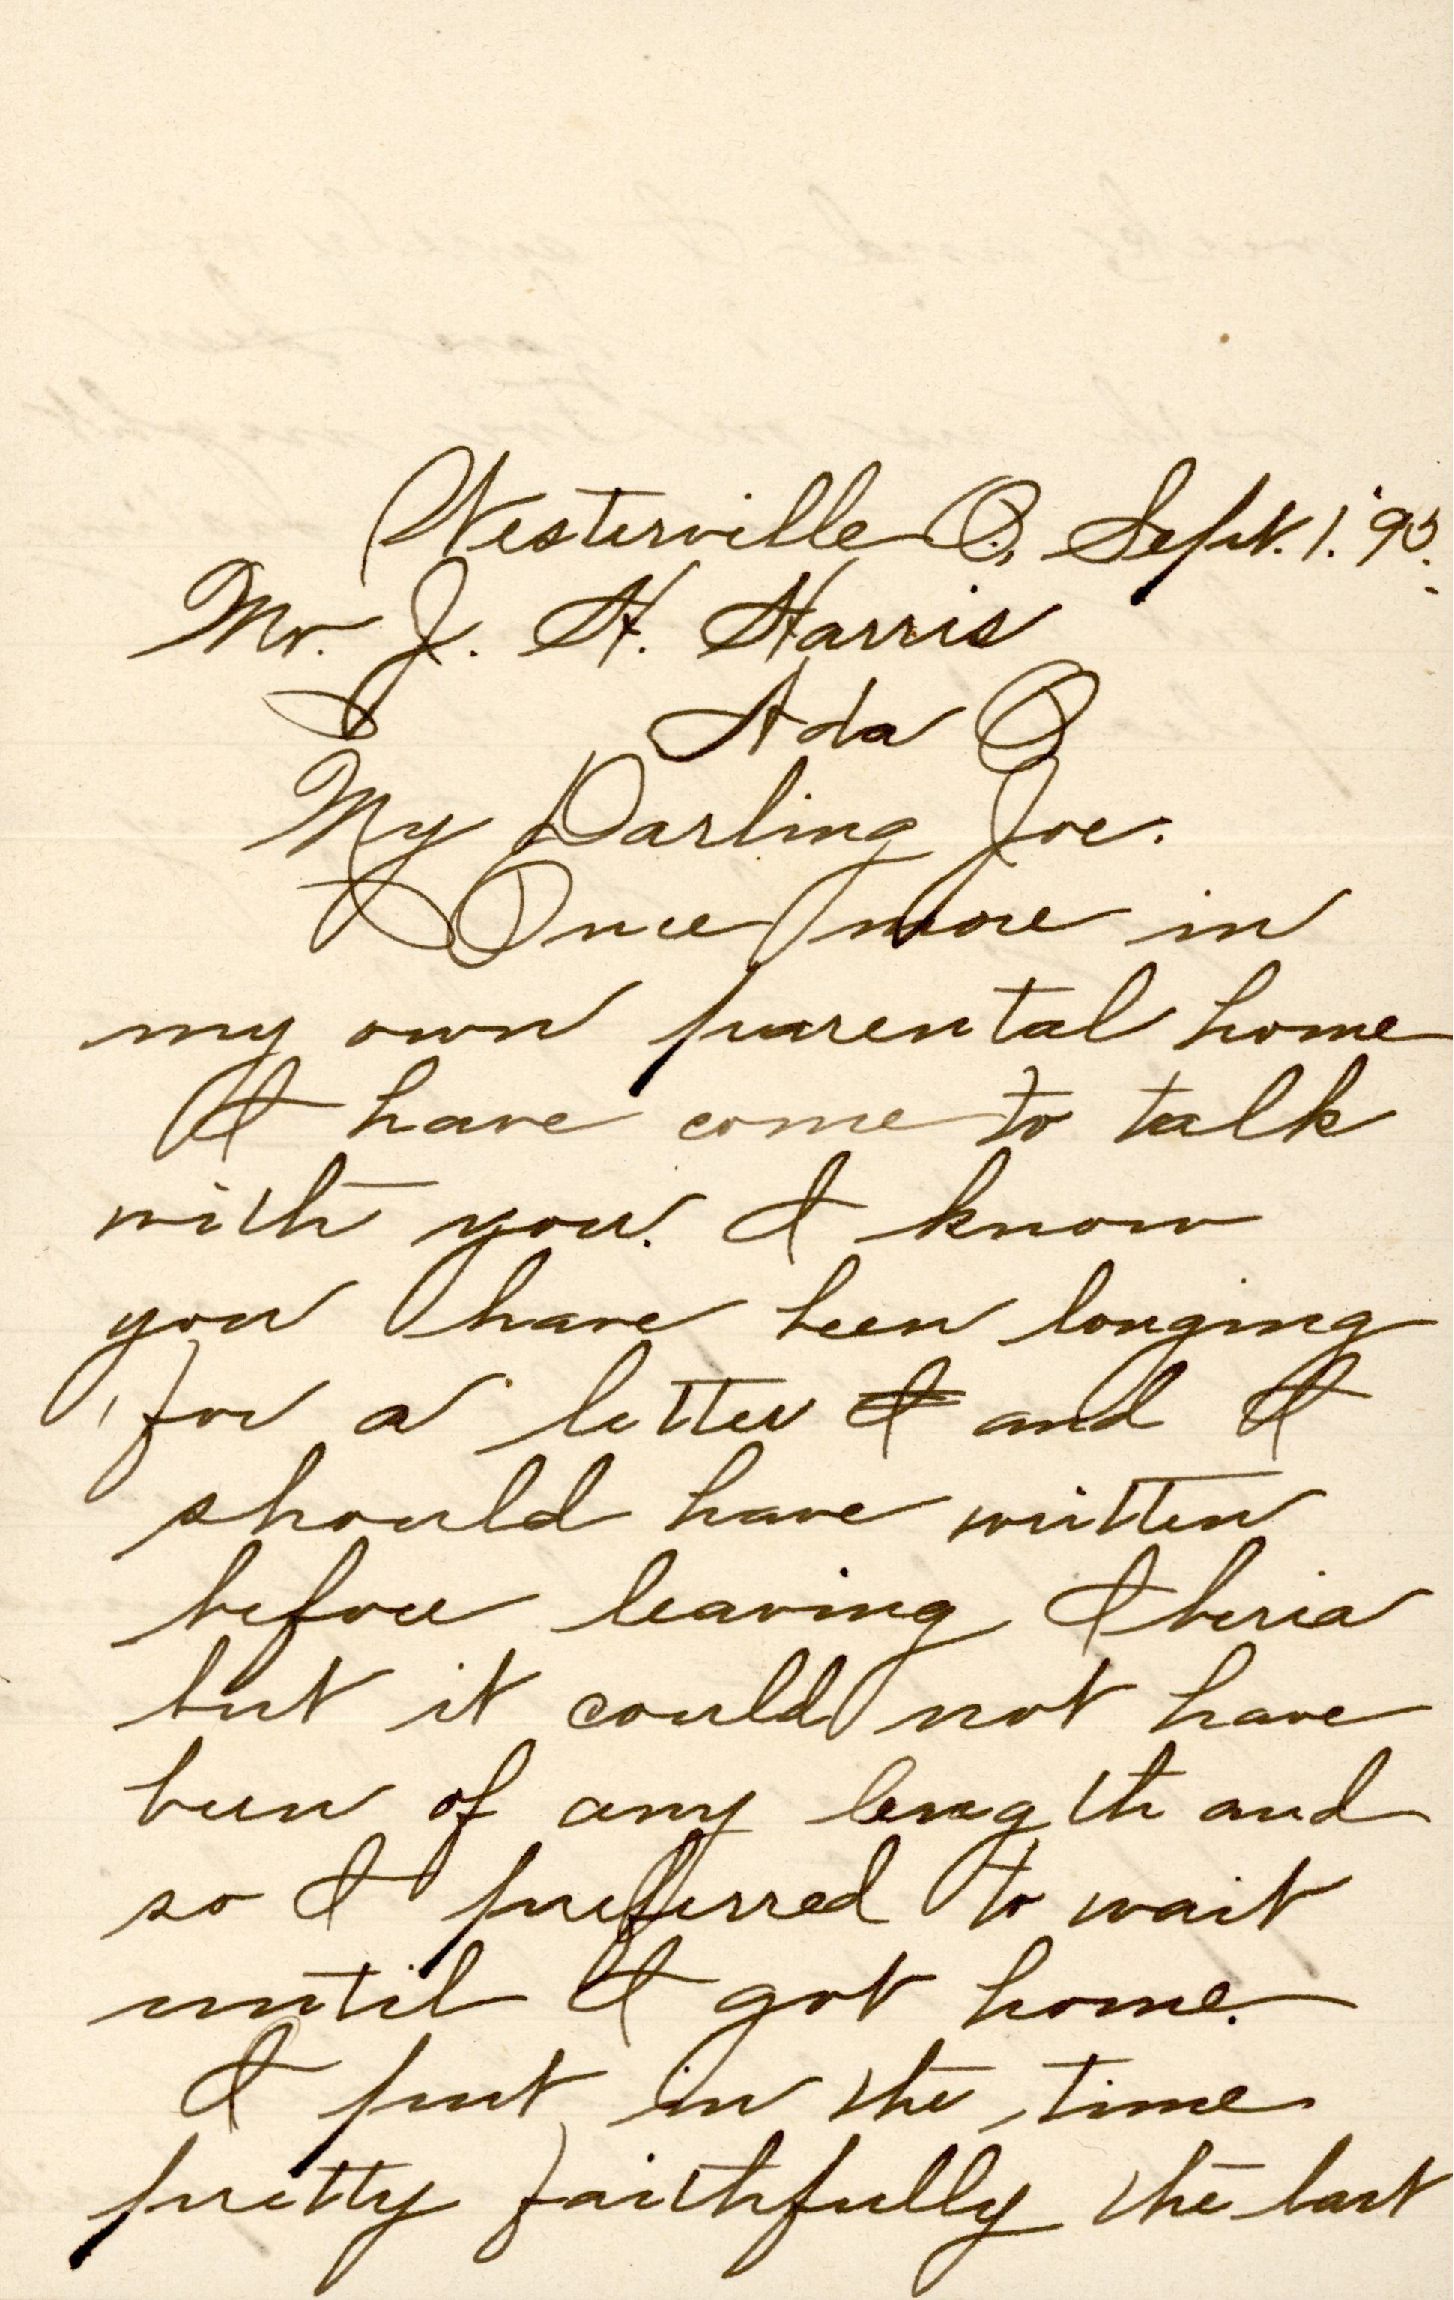 Westerville O., Sept. 1. '95.
Mr. J. H. Harris
Ada O
My Darling Joe.
Once more in
my own parental home
I have come to talk
with you. I know
you have been longing
for a letter I and I
should have written
before leaving Iberia
but it could not have
been of any length and
so I preferred to wait
until I got home.
I put in the time
pretty faithfully the last